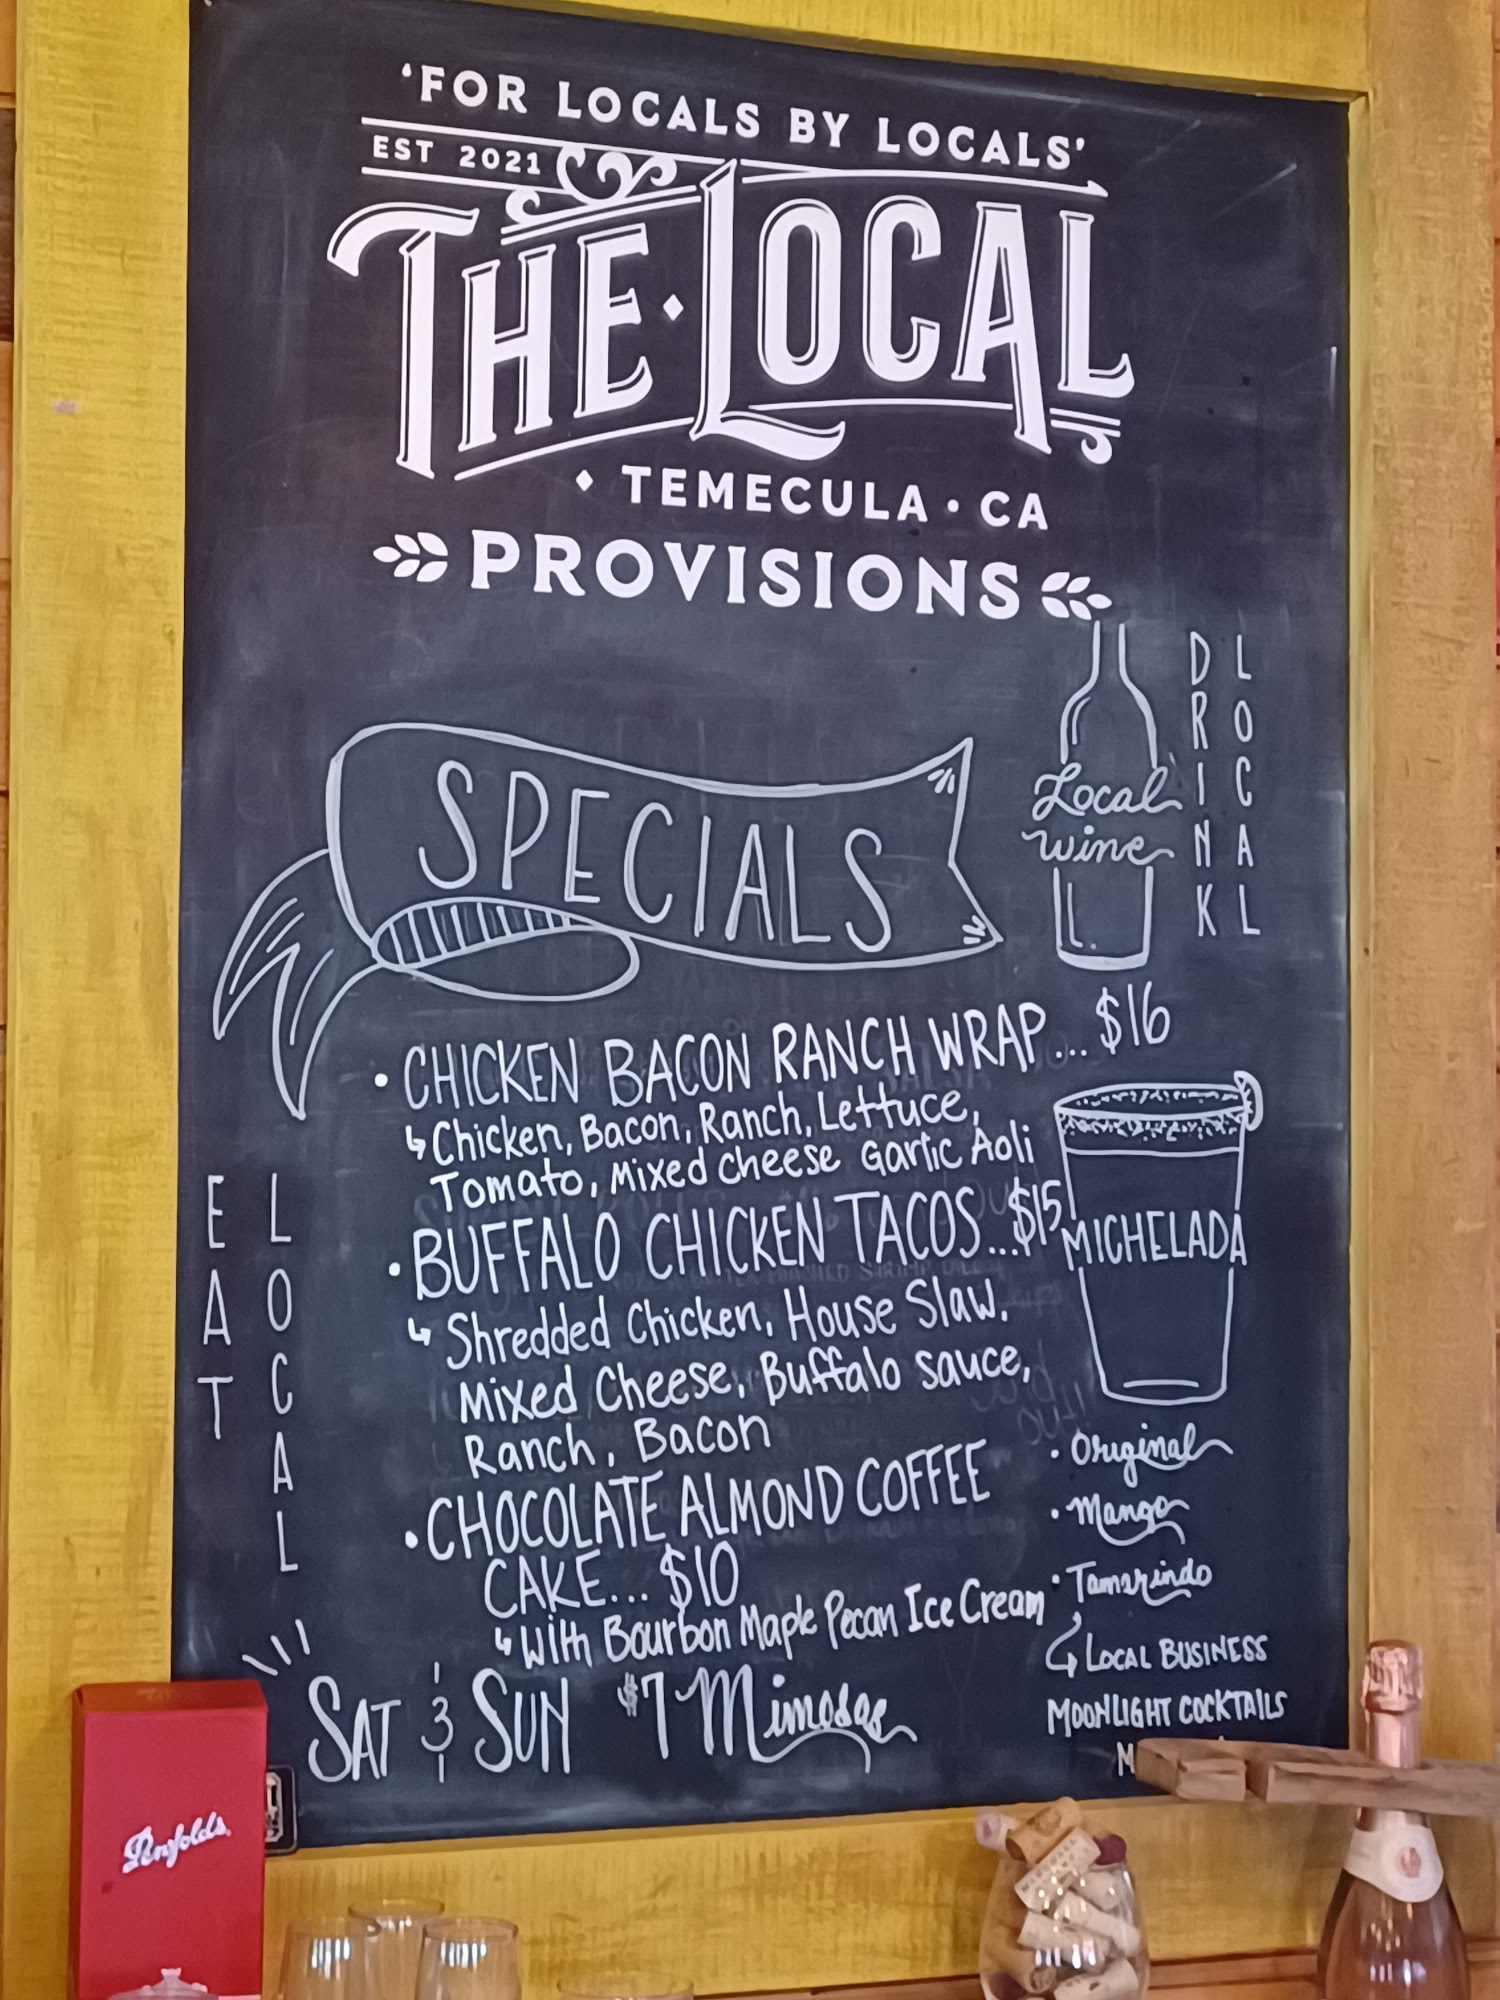 'FOR LOCALS BY LOCALS'
EST 2021
THE · LOCAL
· TEMECULA · CA
PROVISIONS
DRINK
LOCAL
Local
wine
SPECIALS
• CHICKEN BACON RANCH WRAP... $16
↳ Chicken, Bacon, Ranch, Lettuce,
Tomato, Mixed Cheese Garlic Aoli
• BUFFALO CHICKEN TACOS...$15
↳ Shredded Chicken, House Slaw.
Mixed Cheese, Buffalo sauce,
Ranch, Bacon
• CHOCOLATE ALMOND COFFEE
CAKE... $10
↳ With Bourbon Maple Pecan Ice Cream
EAT
LOCAL
MICHELADA
• Original
• Mango
• Tamarindo
↳ LOCAL BUSINESS
MOONLIGHT COCKTAILS
SAT & SUN $7 Mimosas
Penfolds